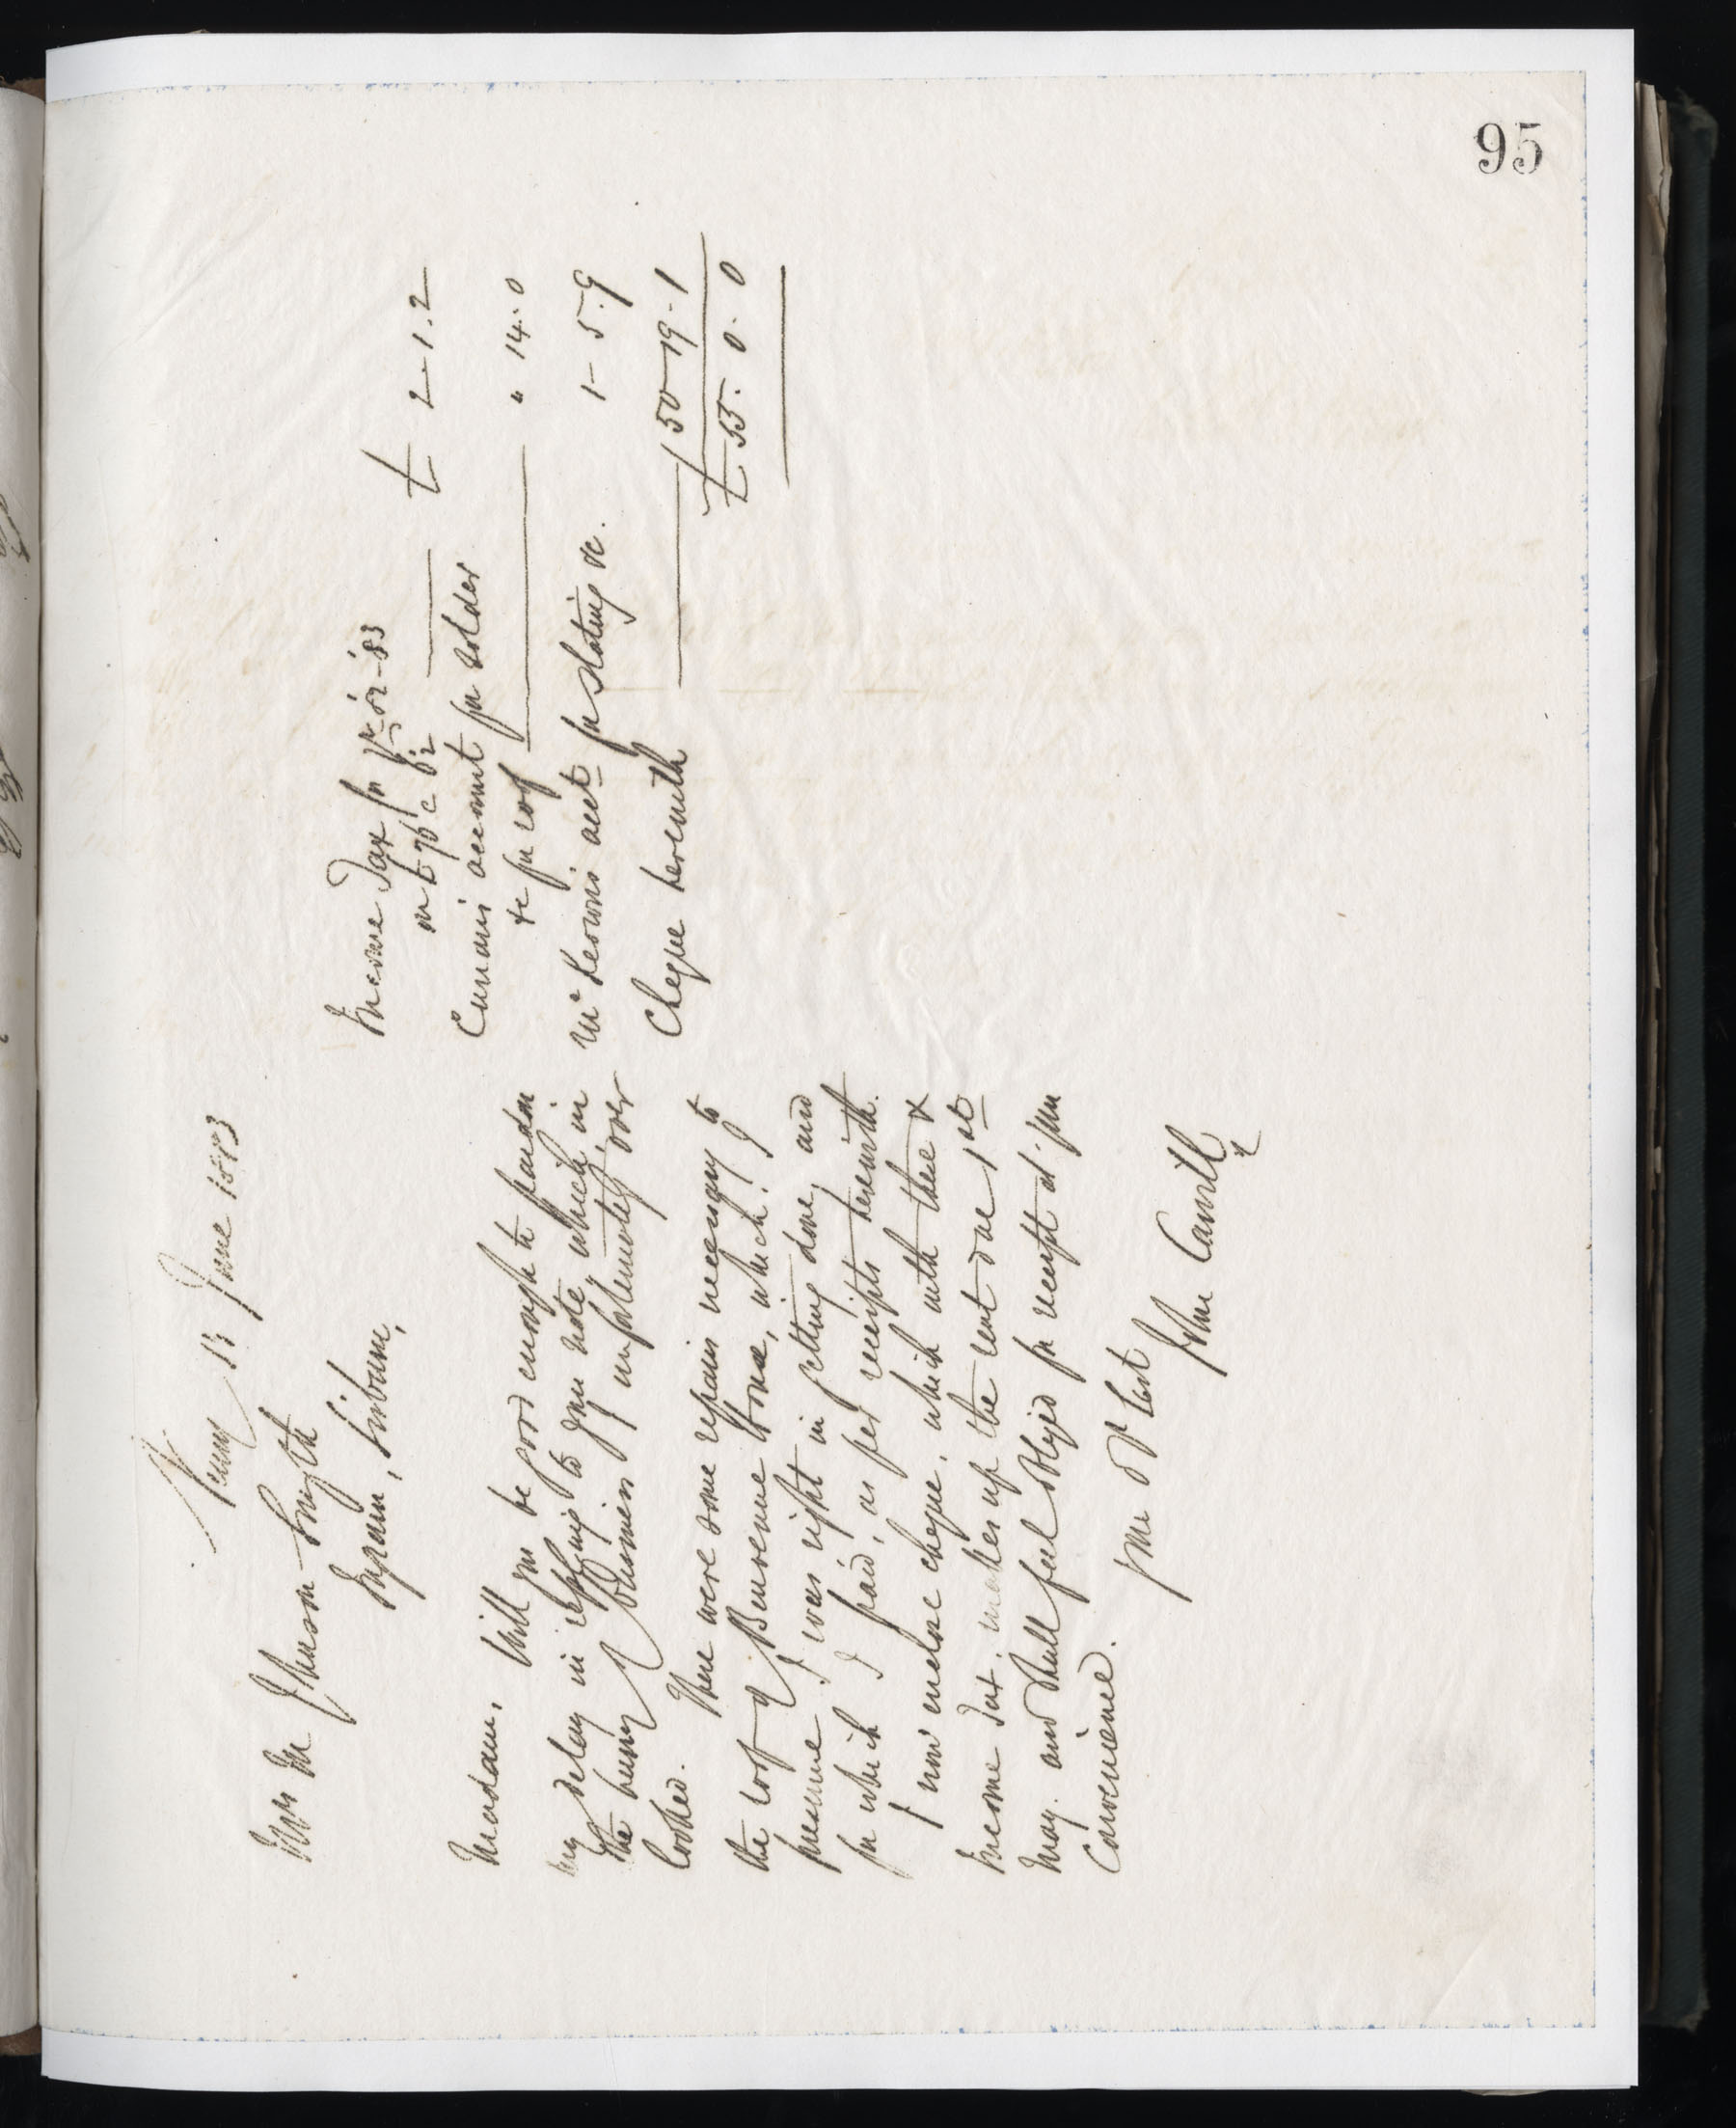 95
Newry 13 June 1883
Mrs M Johnson-Smyth
Ingram, Lisburn,
Madam. Will you be good enough to pardon
my delay in replying to your note, which, in
the hurry of business I unfortunately over
looked.
There were some repairs necessary to
the roof of Buurenue House, which I
presume I was right in getting done, and
for which I paid, as per receipts herewith.
I now enclose cheque, which with these &
Income Tax, makes up the rent due 1st
May. and shall feel obliged for receipt at your
Convenience.
your Obt Servt
John Carvill
Income Tax for yr '82-'83
on £76 @ 6½ £ 2-1.2
Curran's account for solder
&c for roof " 14.0
McKeown's acct for slating &c. 1-5.9
Cheque herewith 50-19-1
£55.0.0